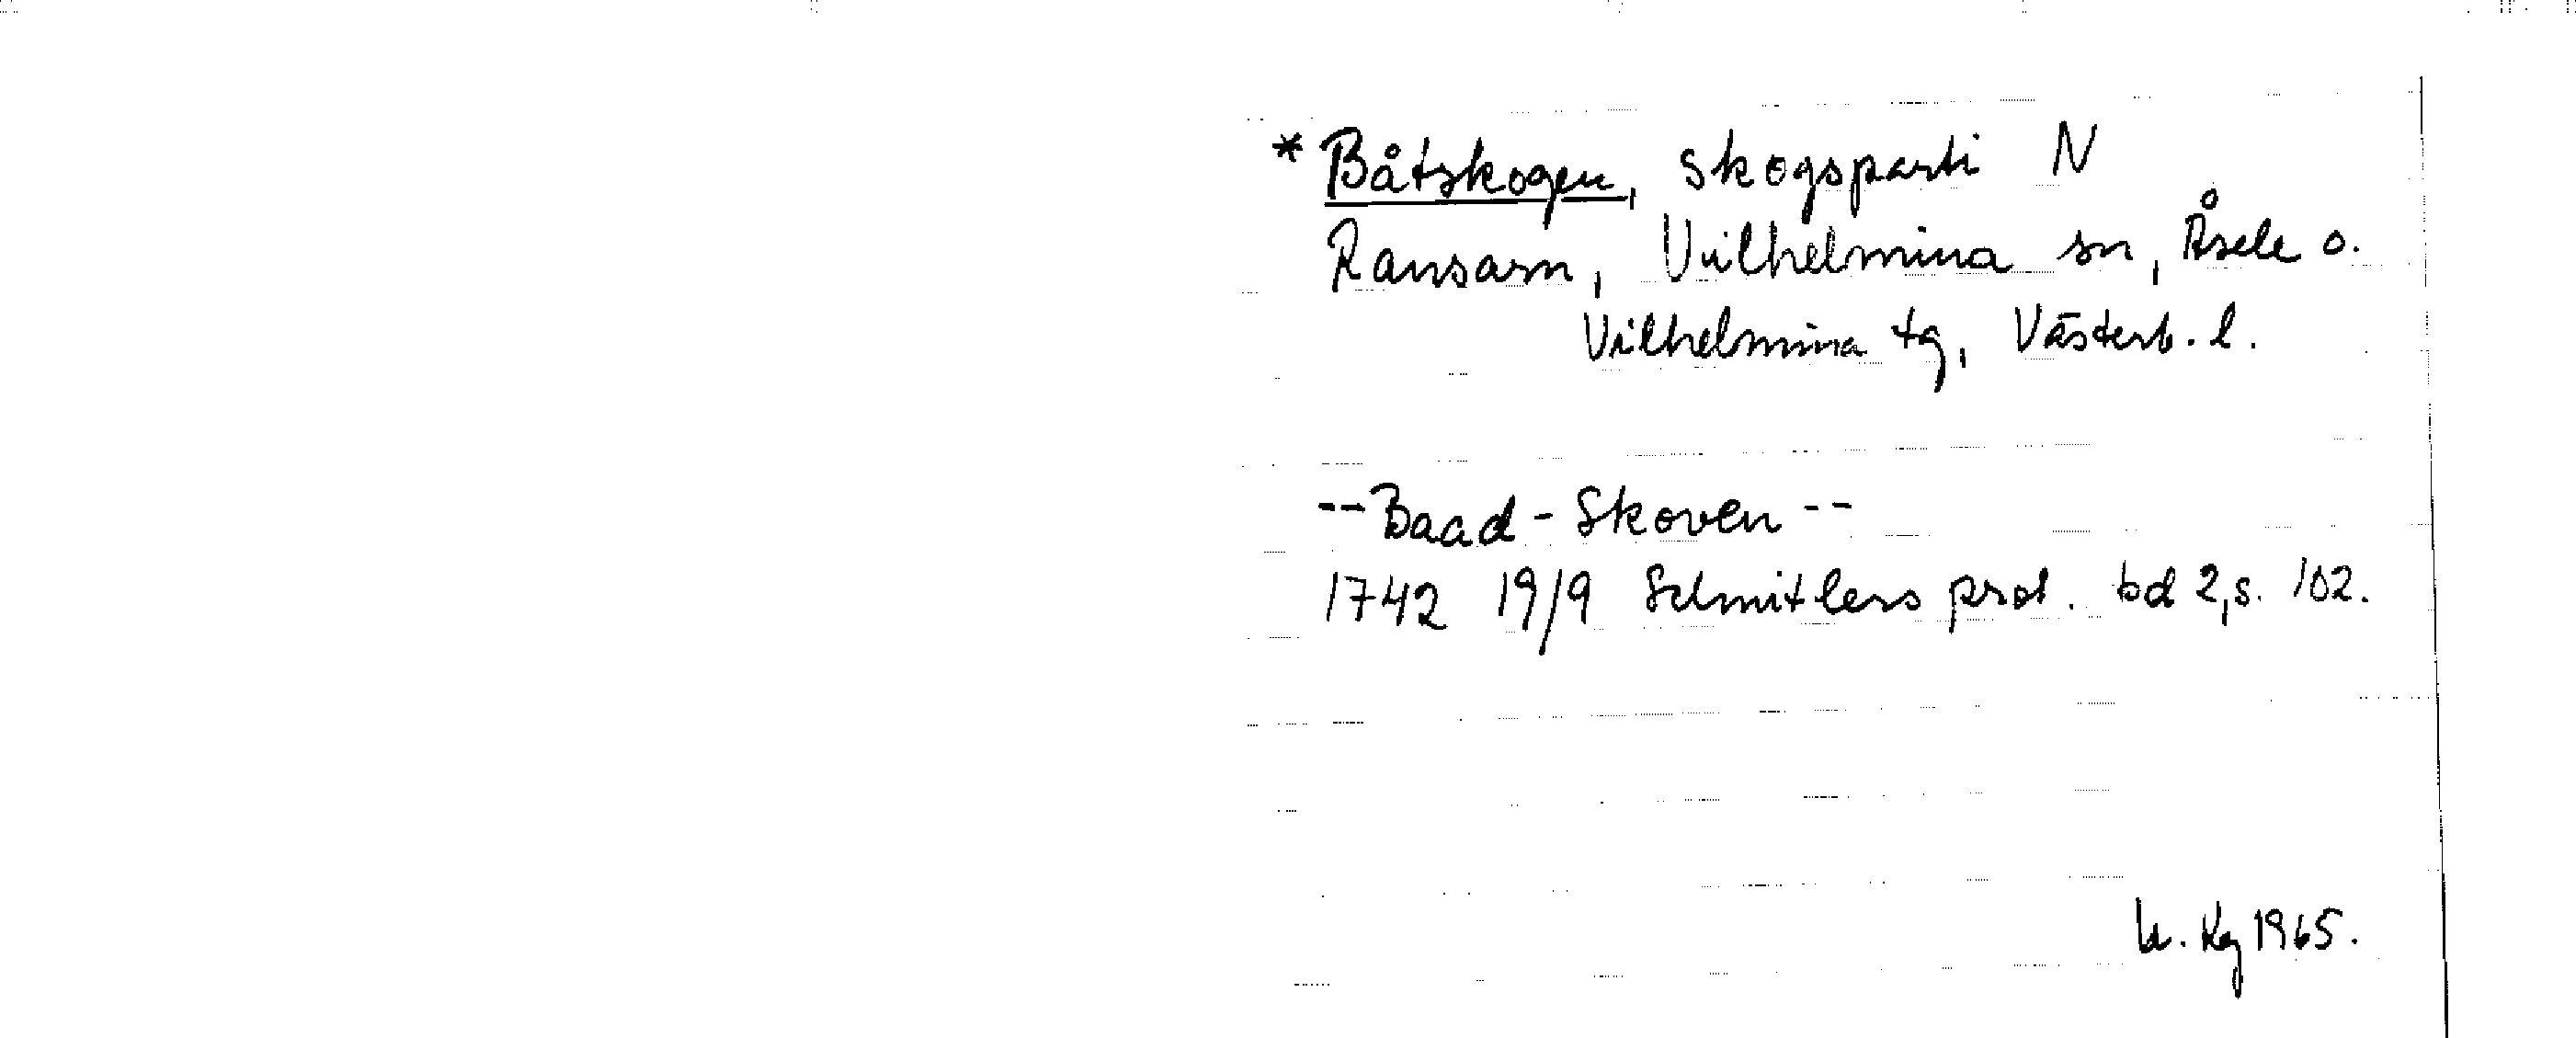 *Båtskogen, skogsparti N
Ransarn, Vilhelmina sn, Åsele o.
Vilhelmina tg, Västerb. l.
--Baad-Skoven--
1742 19/9 Schnitlers prot. bd 2, s. 102.
Kg 1965.